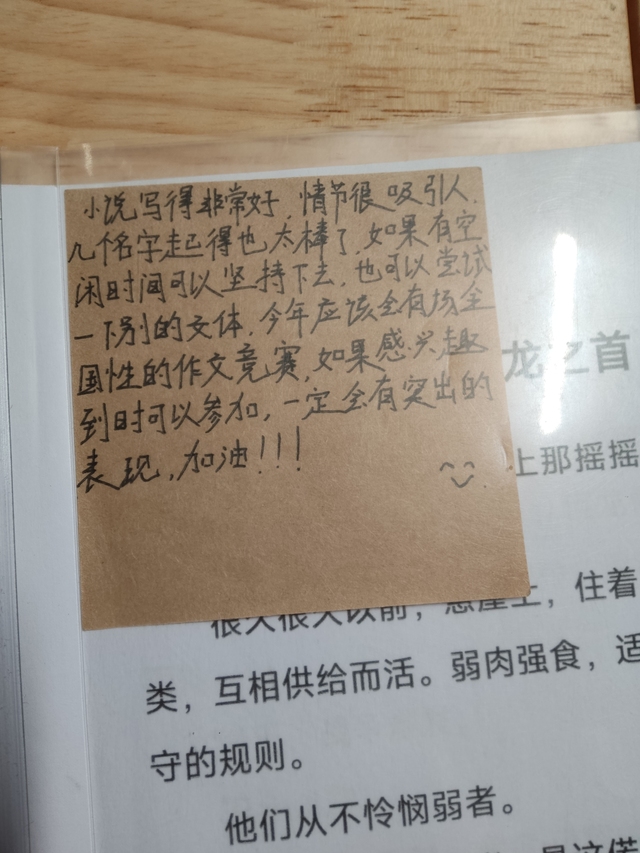 小说写得非常好,情节很吸引人.
几个名字起得也太棒了,如果有空
闲时间可以坚持下去,也可以尝试
一下别的文体.今年应该会有场全
国性的作文竞赛,如果感兴趣
到时可以参加,一定会有突出的
表现,加油!!!
龙之首
上那摇摇
很久很久以前,悬崖上,住着
类,互相供给而活。弱肉强食,适
守的规则。
他们从不怜悯弱者。